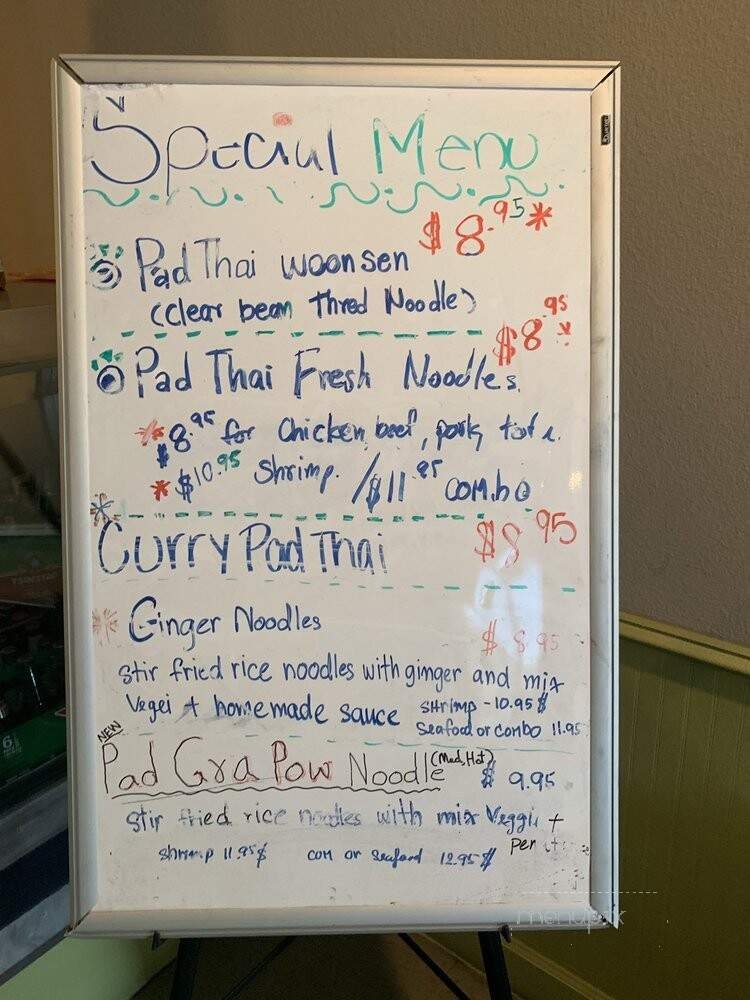 Special Menu
$8.95*
Pad Thai woonsen
(clear bean Thred Noodle)
$8.95*
Pad Thai Fresh Noodles.
*$8.95 for Chicken, beef, pork, tofu.
*$10.95 Shrimp. /$11.95 combo
Curry Pad Thai $8.95
Ginger Noodles $8.95
stir fried rice noodles with ginger and mix
Vegei + homemade sauce SHrimp - 10.95$
Seafood or combo 11.95
NEW
Pad Gra Pow Noodle (Med, Hot) $ 9.95
stir fried rice noodles with mix Veggie +
shrimp 11.95$ com or seafood 12.95$
menupix
6